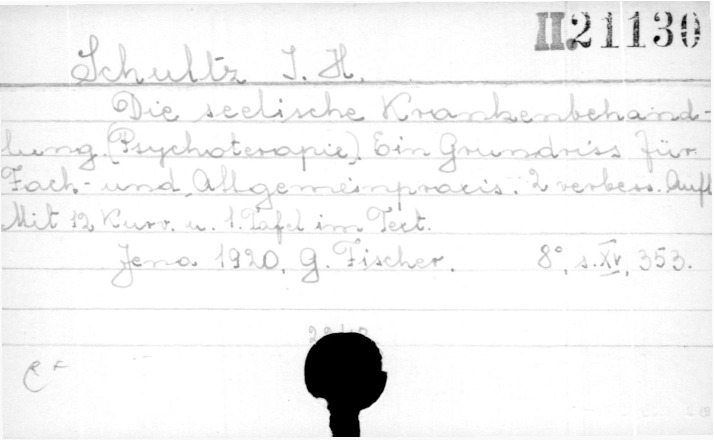 II 21130
Schultz J. H.
Die seelische Krankenbehand-
lung (Psychoterapie). Ein Grundriss für
Fach- und Allgemeinpraxis. 2 verbess. Aufl
Mit 12 Kurv. u. 1. Tafel im Text.
Jena 1920. G. Fischer. 8°, s. XV, 353.